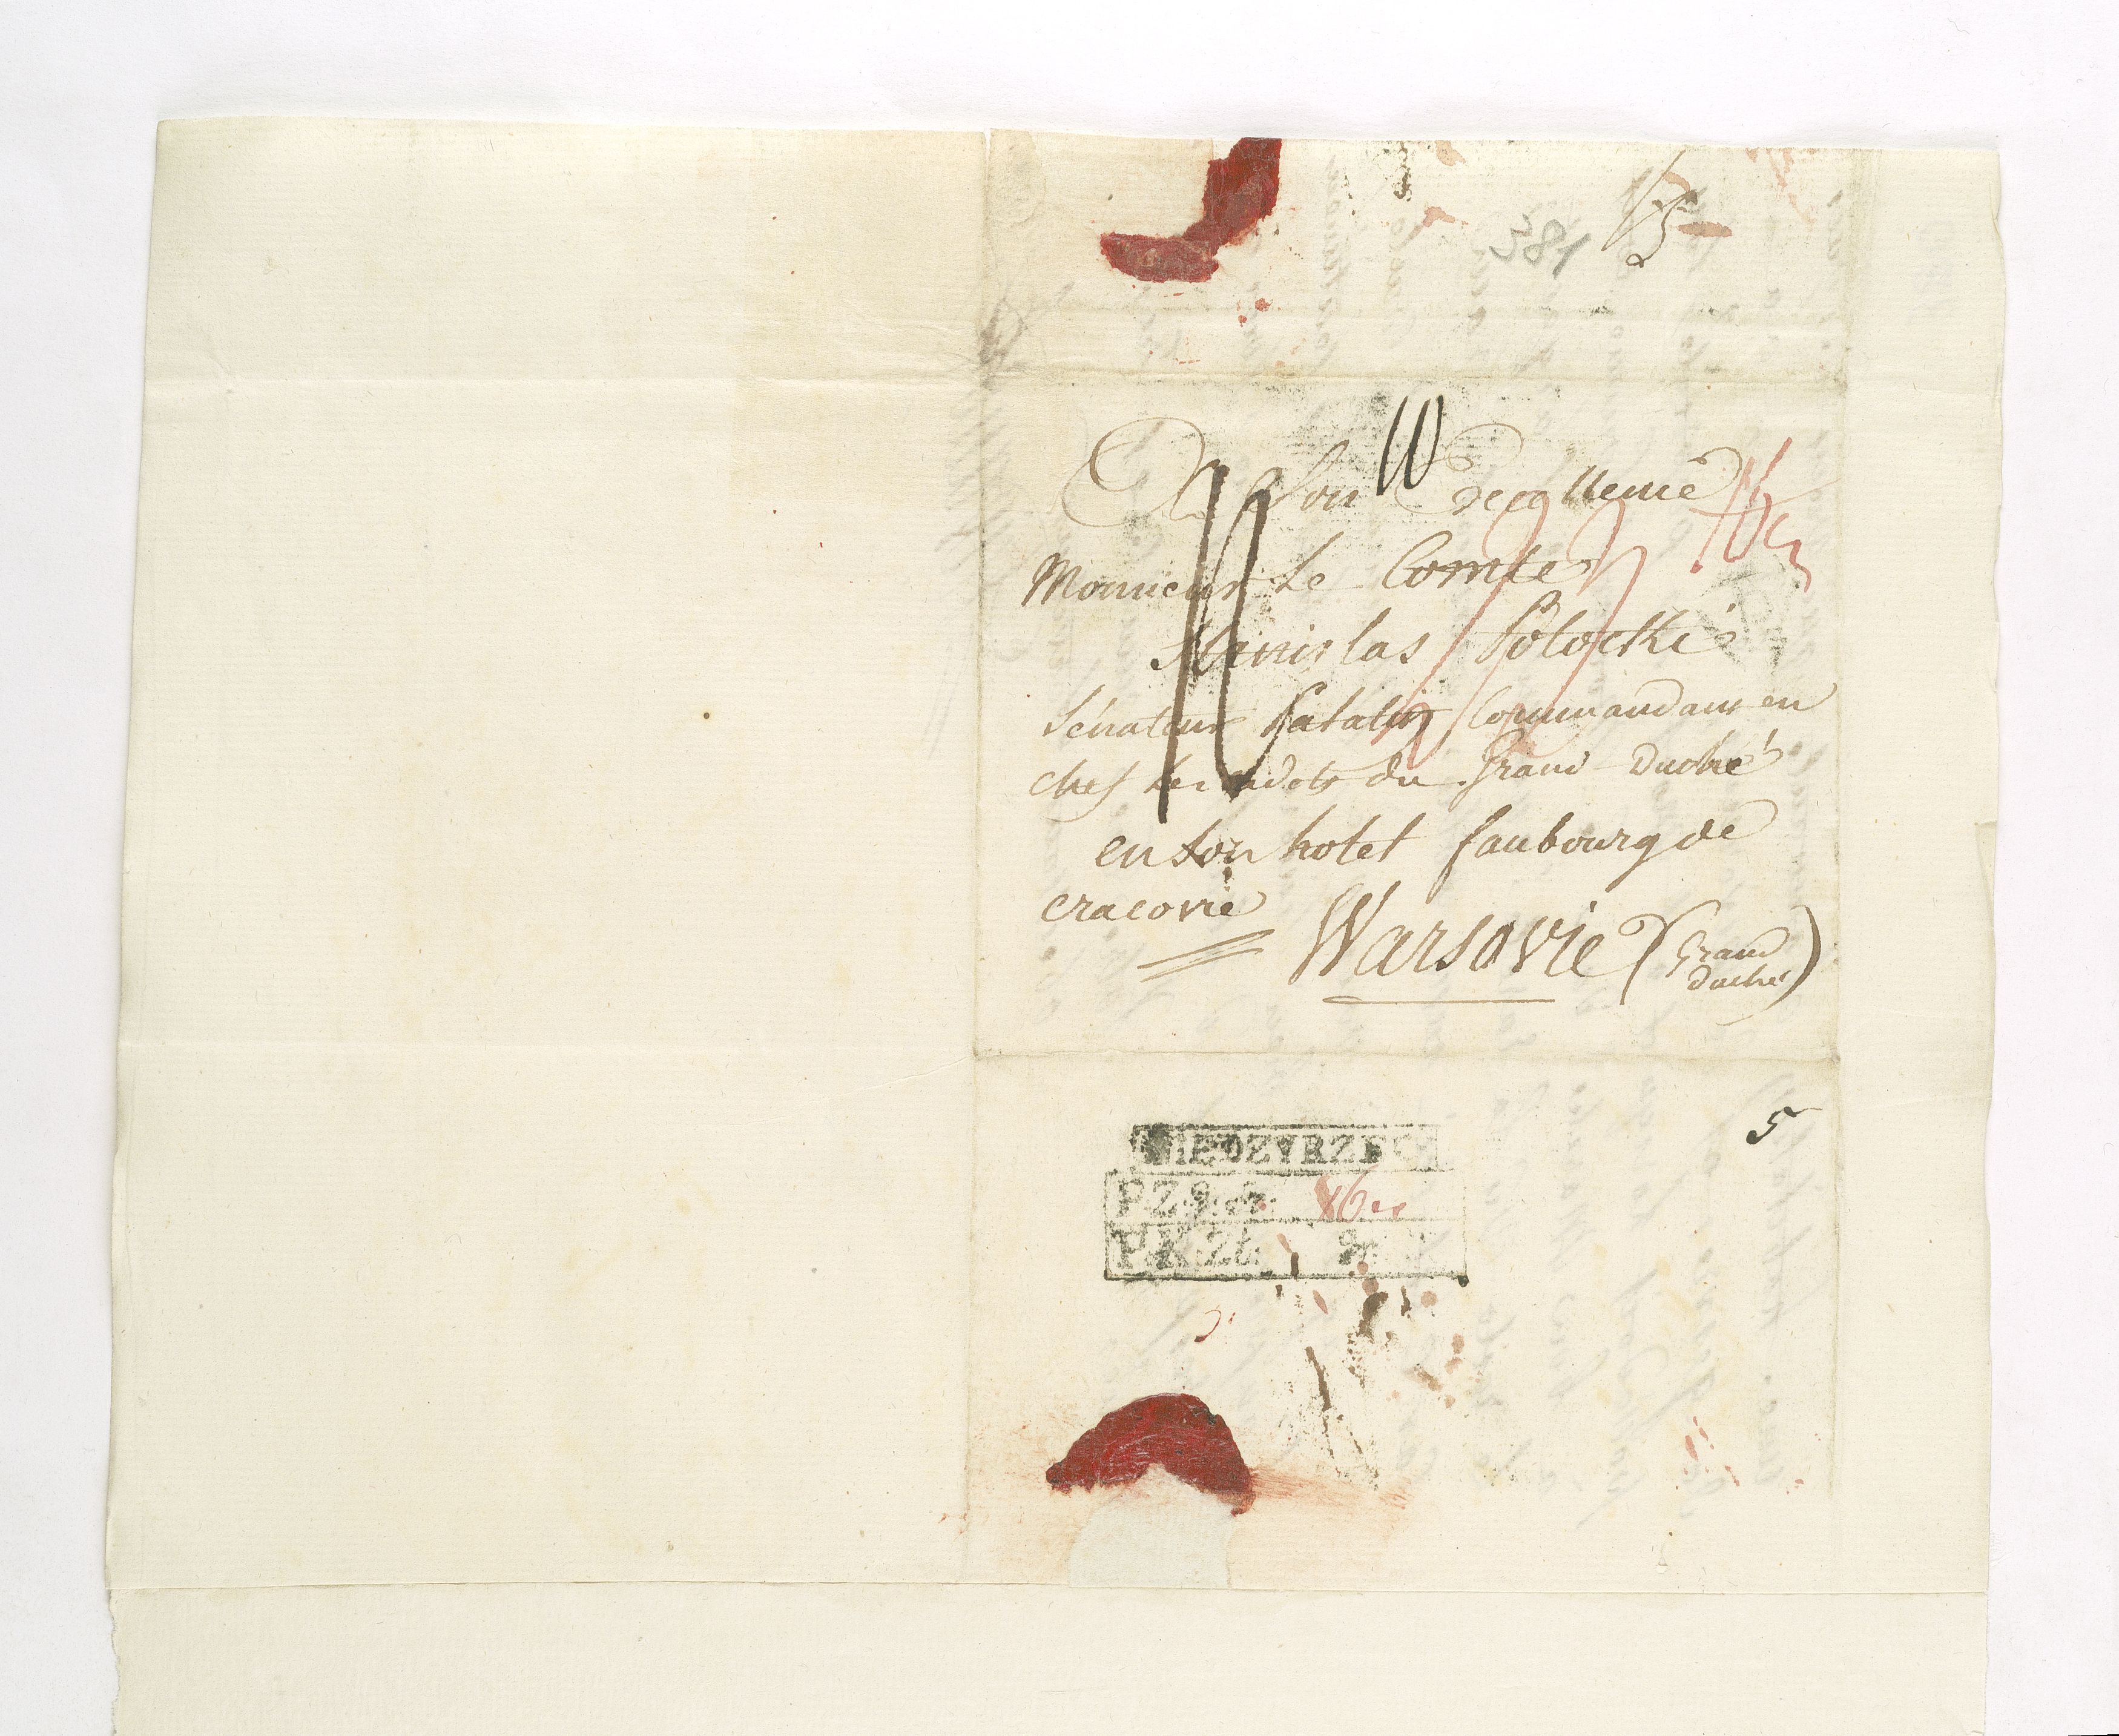 381
A Son Excellence
Monsieur Le Comte
Stanislas Potocki
Sénateur Palatin Commandant en
chef les cadets du Grand Duché
en son hotel faubourg de
cracovie
Warsovie (Grand
duché)
5
MIĘDZYRZEC
P.Z. gr.
P.K. Zł. gr.